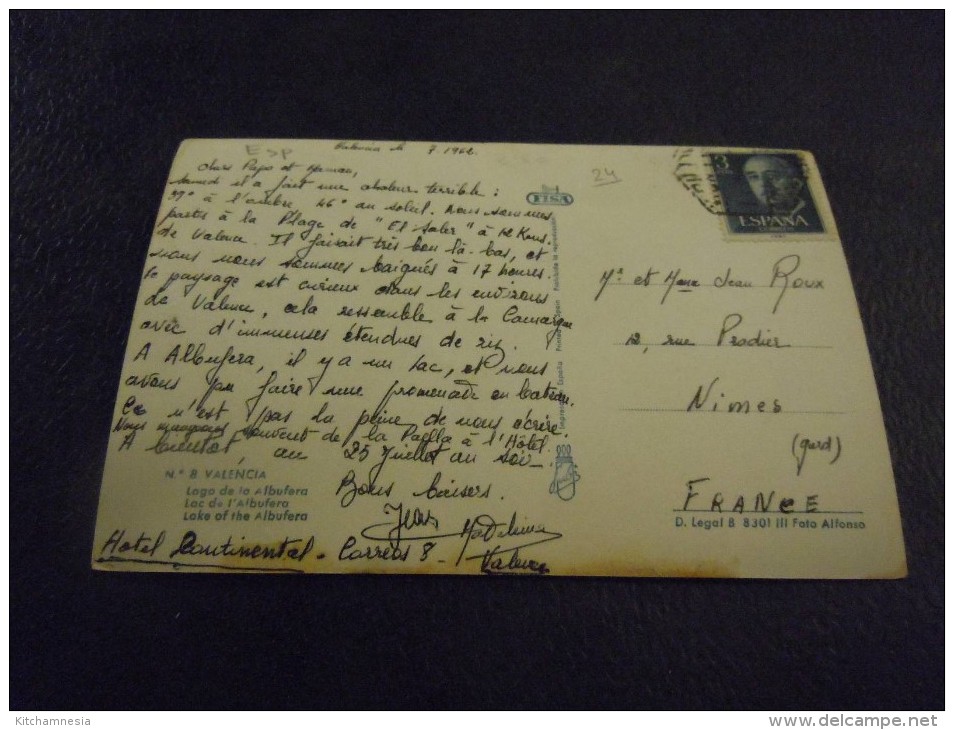 ESP
Valencia le 7 1962.
Chers Papa et Maman,
Samedi il a fait une chaleur terrible :
39° à l'ombre, 46° au soleil. Nous sommes
partis à la Plage de "El Saler" à 12 Kms.
de Valence. Il faisait très bon là-bas, et
nous nous sommes baignés à 17 heures.
Le paysage est curieux dans les environs
de Valence, cela ressemble à la Camargue
avec d'immenses étendues de riz.
A Albufera, il y a un lac, et nous
avons pu faire une promenade en bateau.
Ce n'est pas la peine de nous écrire.
Nous mangeons souvent de la Paella à l'Hôtel.
A bientôt, au 25 Juillet au soir
Bons baisers.
Jean
Hotel Continental - Correos 8 - Valence
N.° 8 VALENCIA
Lago de la Albufera
Lac de l'Albufera
Lake of the Albufera
FISA
24
3
ESPAÑA
Mr et Mme Jean Roux
12, rue Pradier
Nimes
(gard)
FRANCE
D. Legal B 8301 III Foto Alfonso
Kitchamnesia
www.delcampe.net